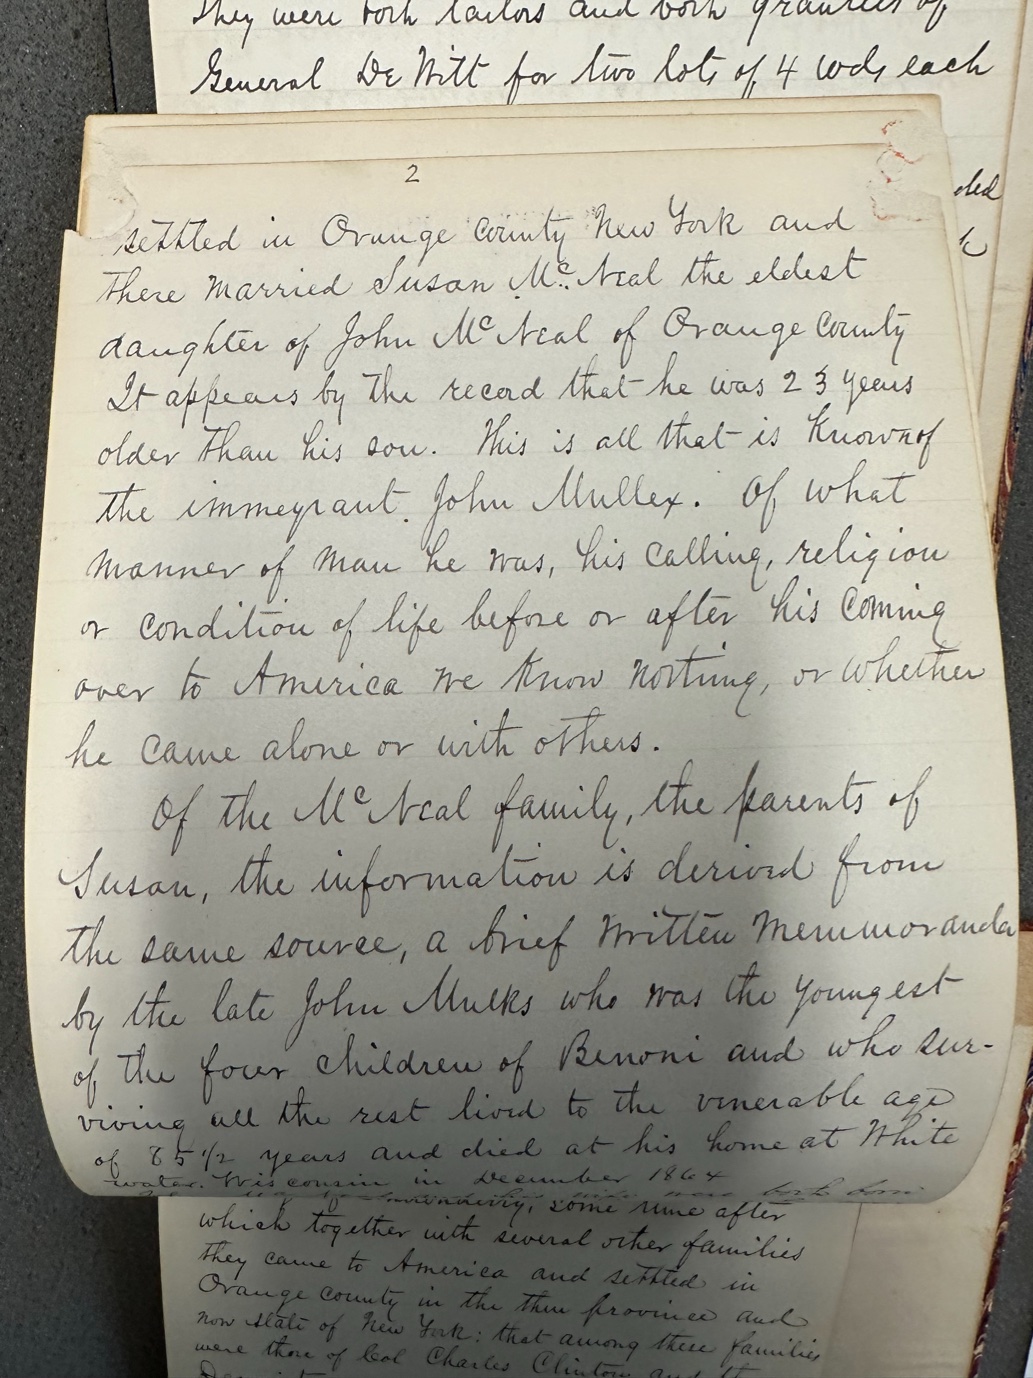 They were both tailors and both grantees of
General De Witt for two lots of 4 wds each
2
settled in Orange County New York and
there married Susan Mc Neal the eldest
daughter of John Mc Neal of Orange County
It appears by the record that he was 23 years
older than his son. This is all that is known of
the immegrant John Mullex. Of what
manner of man he was, his calling, religion
or condition of life before or after his coming
over to America we know nothing, or whether
he came alone or with others.
Of the Mc Neal family, the parents of
Susan, the information is derived from
the same source, a brief written Memmoranda
by the late John Mulks who was the youngest
of the four children of Benoni and who sur-
viving all the rest lived to the venerable age
of 85 1/2 years and died at his home at White
water. Wisconsin in December 1864
some time after
which together with several other families
they came to America and settled in
Orange County in the then province and
now state of New York: that among these families
were those of Col Charles Clinton and